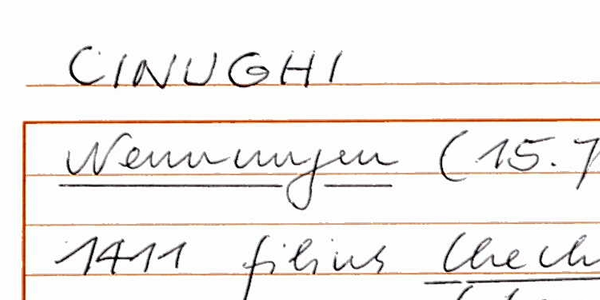 CINUGHI
Nennungen (15.
1411 filius Chech